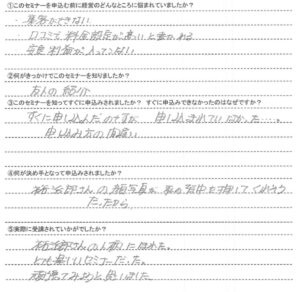 ①このセミナーを申込む前に経営のどんなところに悩まれていましたか?
集客ができない
口コミで料金設定が高いと書かれる
②何がきっかけでこのセミナーを知りましたか?
友人の紹介
③このセミナーを知ってすぐに申込みされましたか? すぐに申込みできなかったのはなぜですか?
すぐに申し込んだのですが 申し込まれていなかった……。
申し込み方の間違い
④何が決め手となって申込みされましたか?
祐治郎さんの顔写真が私の背中を押してくれそう
だったから
⑤実際に受講されていかがでしたか?
祐治郎さんの人柄にほれた。
とても楽しいセミナーだった。
頑張ってみようと思いました